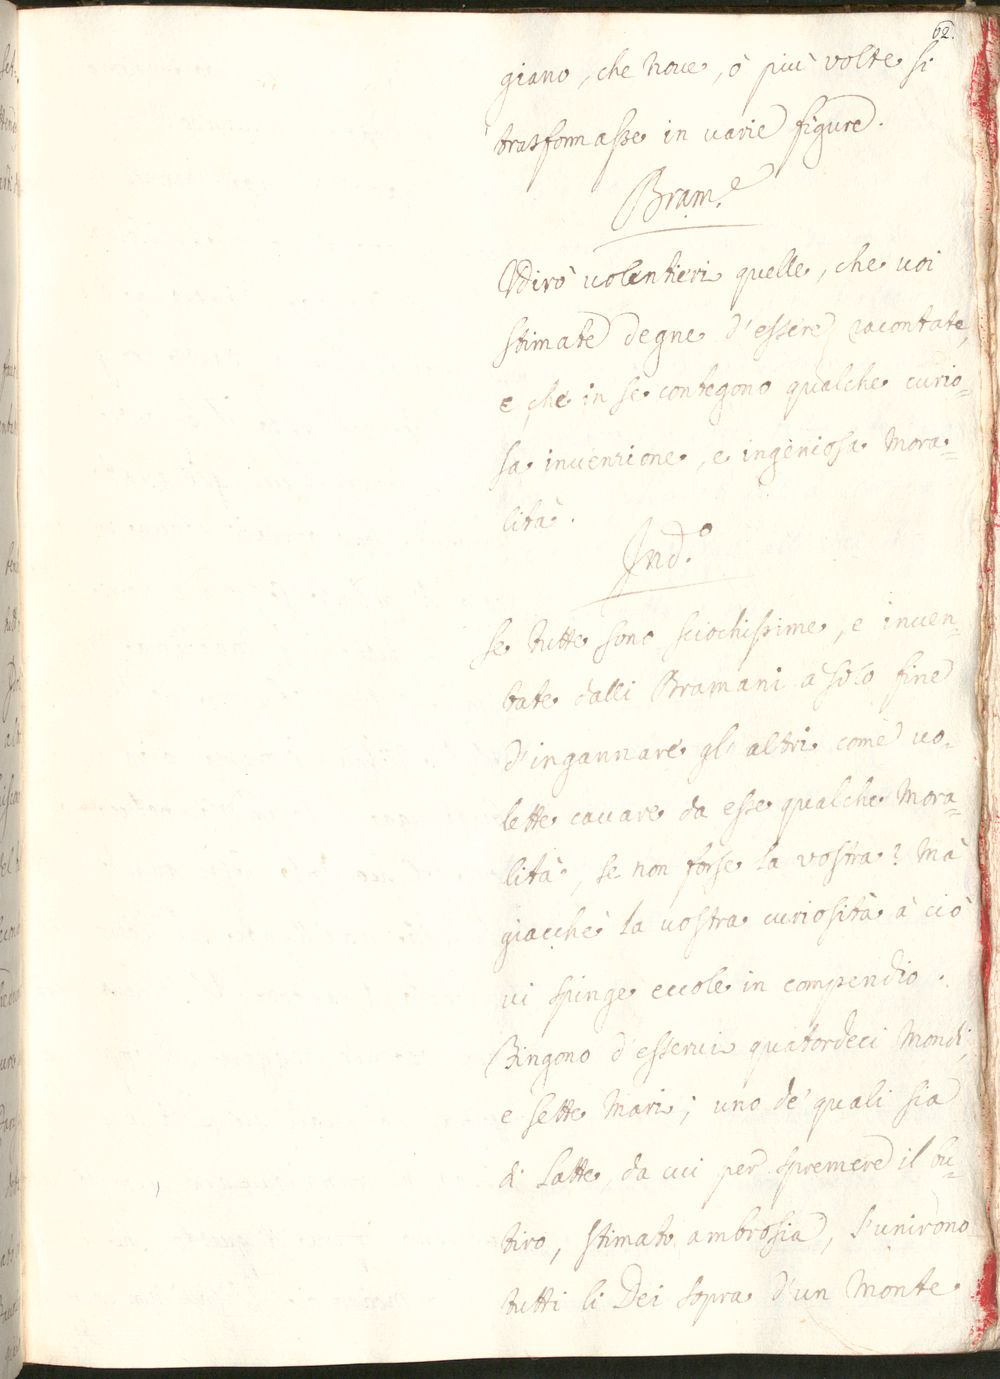 62.
giano, che noue, ò più volte si
trasformasse in varie figure.
Bram.e
Vdirò uolentieri quelle, che uoi
stimate degne d'essere racontate,
e che in se contegono qualche curio=
sa inuenzione, e ingeniosa mora=
lità.
Ind.o
se tutte sono sciochissime, e inuen=
tate dalli Bramani a solo fine
d'ingannare gl'altri come uo=
lette cauare da esse qualche mora=
lità, se non forse la vostra? Mà
giacchè la uostra curiosità à ciò
ui spinge eccole in compendio.
Fingono d'esserui quatordeci Mondi,
e sette Mari; uno de' quali sia
di Latte, da cui per spremere il bu=
tiro, stimato ambrosia, s'unirono
tutti li Dei sopra d'un Monte